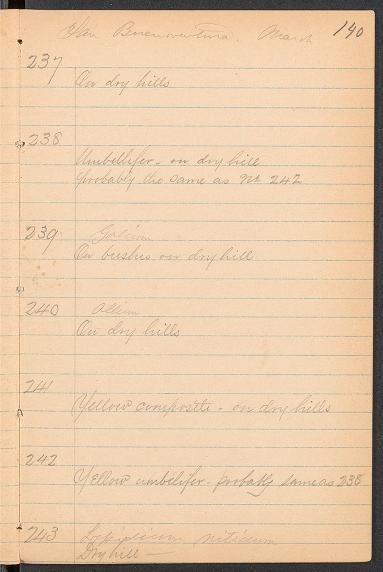 San Buenaventura. March 190
237
On dry hills
238
Umbellifer - on dry hill
probably the same as No. 242
239 Galium
On bushes on dry hill
240 Allium
On dry hills
241
Yellow composite - on dry hills
242
Yellow umbelifer - probably same as 238
243 Lepidium nitidum
Dry hill —